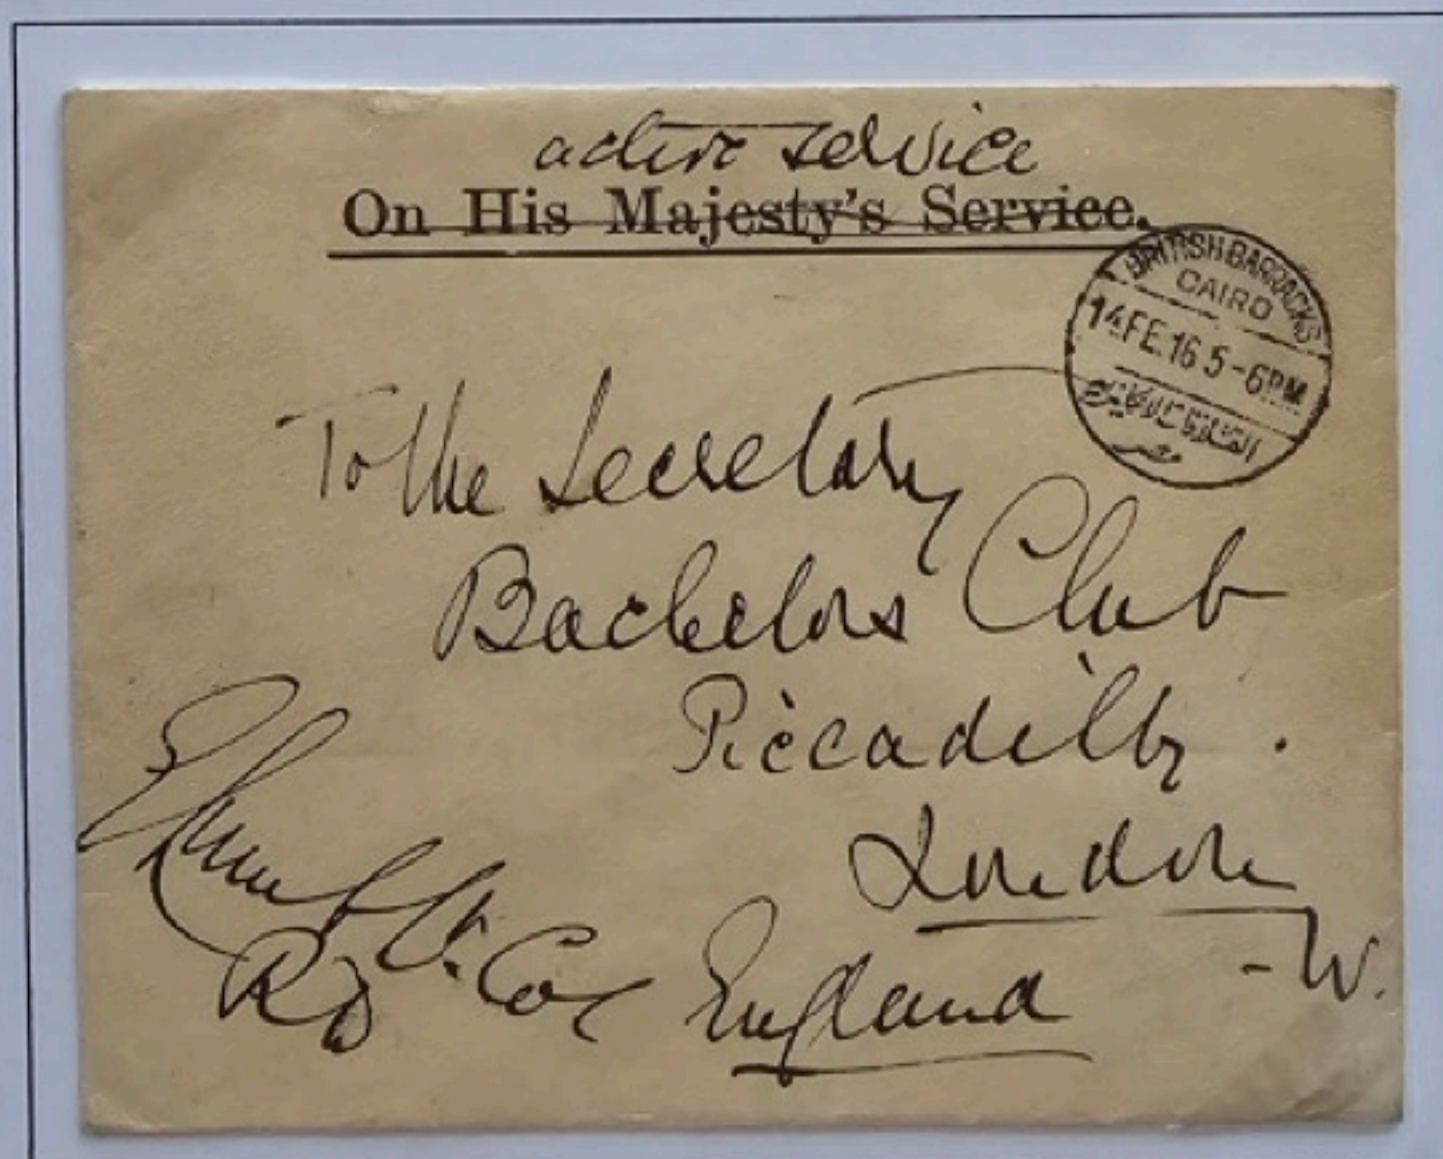 active service
On His Majesty's Service.
BRITISH BARRACKS
CAIRO
14 FE. 16 5-6 PM
مصر
To the Secretary
Bachelors Club
Piccadilly.
London
W.
England